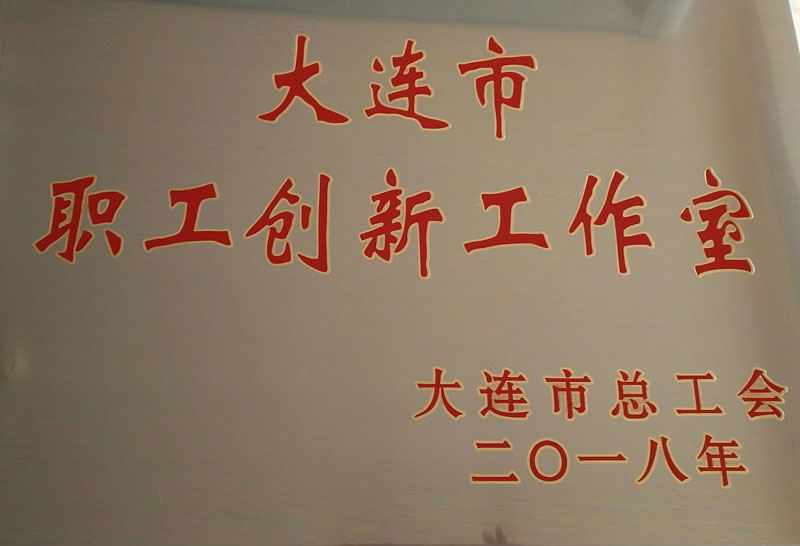 大连市
职工创新工作室
大连市总工会
二〇一八年